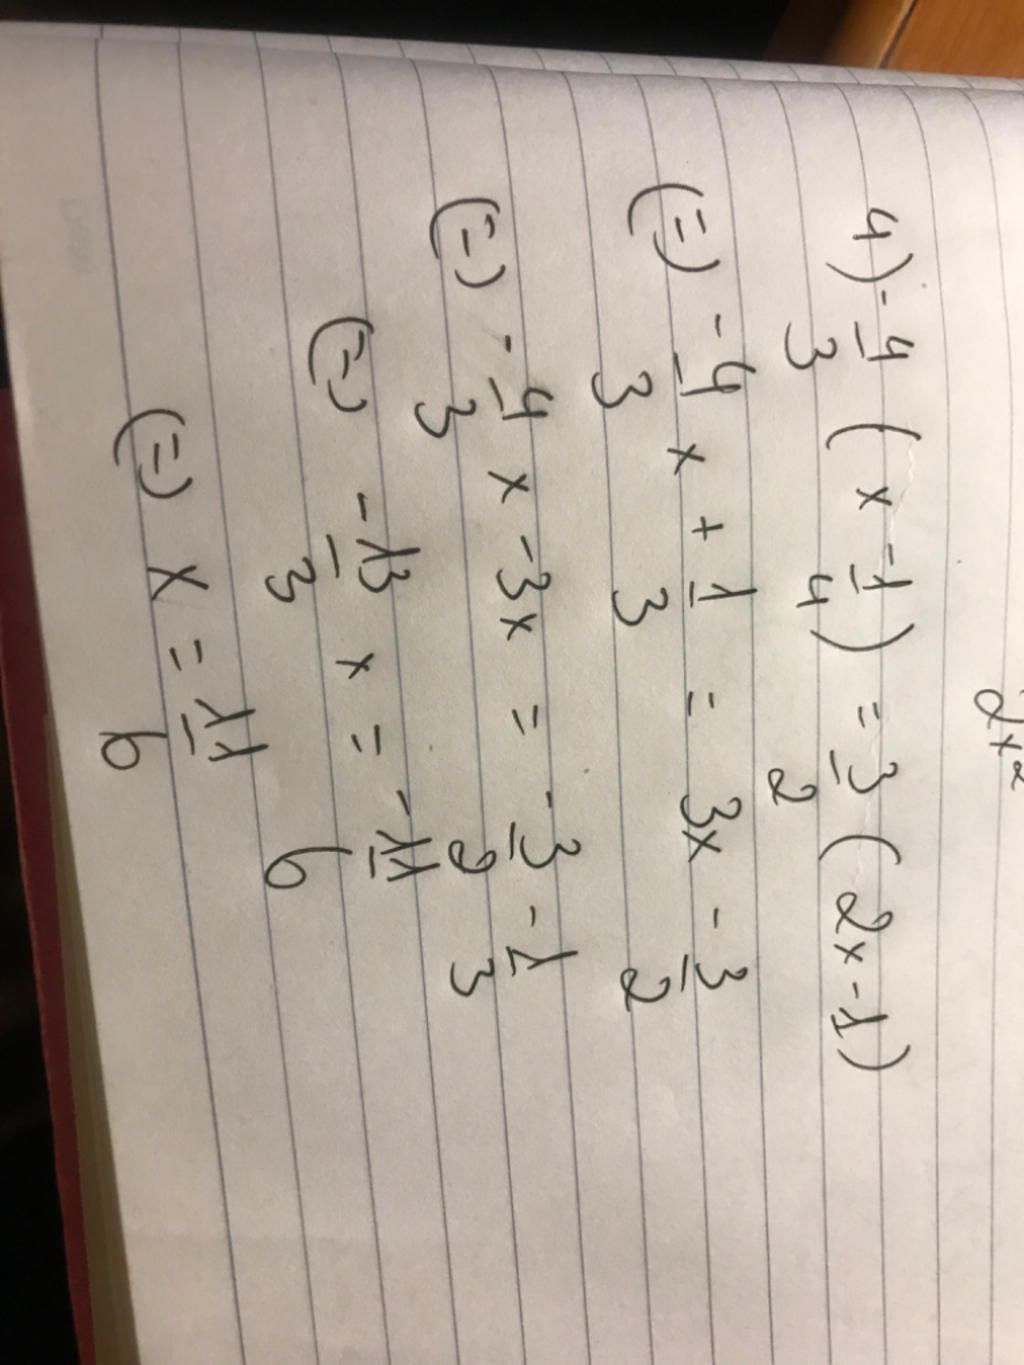 2x²
4) -4/3 (x - 1/4) = 3/2 (2x - 1)
(=) -4/3 x + 1/3 = 3x - 3/2
(=) -4/3 x - 3x = -3/2 - 1/3
(=) -13/3 x = -11/6
(=) x = 11/6